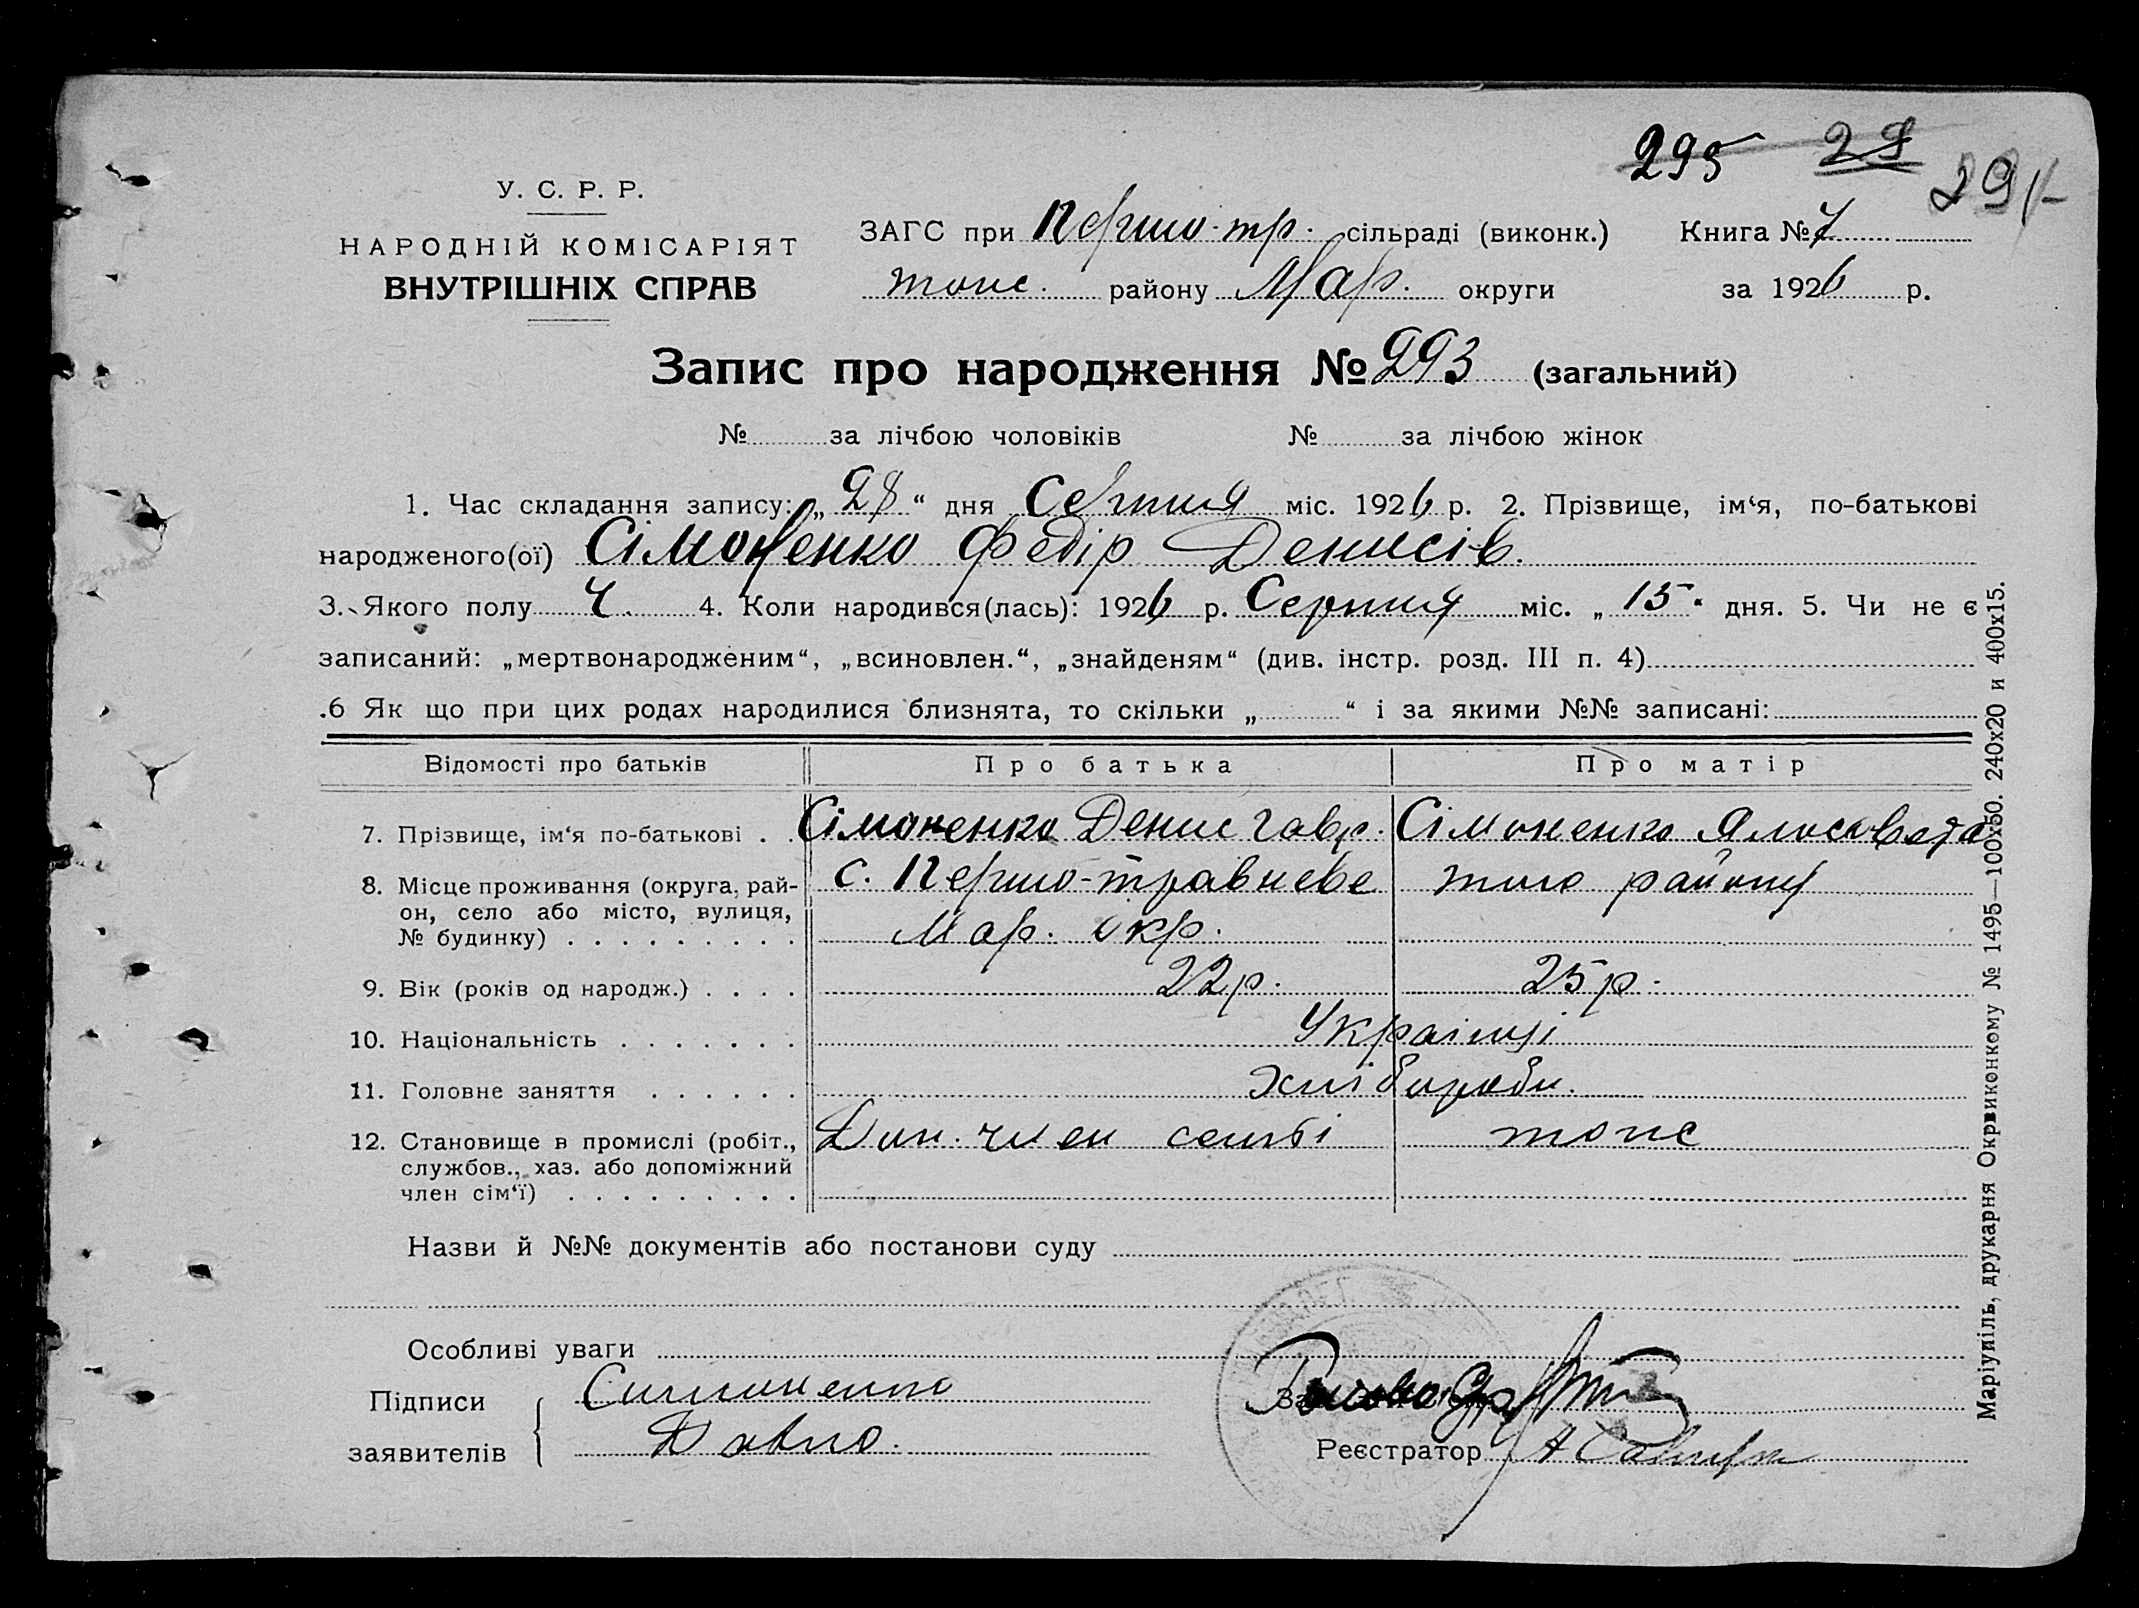 295 28 291
У. С. Р. Р.
НАРОДНІЙ КОМІСАРІЯТ
ВНУТРІШНІХ СПРАВ
ЗАГС при Першо-тр. сільраді (виконк.) Книга № 7
тоже. району Мар. округи за 1926 р.
Запис про народження № 293 (загальний)
№ за лічбою чоловіків № за лічбою жінок
1. Час складання запису: „28“ дня Серпня міс. 1926 р. 2. Прізвище, ім‘я, по-батькові
народженого(ої) Сімоненко Федір Денисів.
3. Якого полу Ч. 4. Коли народився(лась): 1926 р. Серпня міс. „15“ дня. 5. Чи не є
записаний: „мертвонародженим“, „всиновлен.“, „знайденям“ (див. інстр. розд. III п. 4)
.6 Як що при цих родах народилися близнята, то скільки „ “ і за якими №№ записані:
Відомості про батьків Про батька Про матір
7. Прізвище, ім‘я по-батькові . . Сімоненко Денис Гавр. Сімоненко Ялисавета
8. Місце проживання (округа, рай- с. Першо-травневе того району
он, село або місто, вулиця,
№ будинку) . . . . . . . . . Мар. окр.
9. Вік (років од народж.) . . . . 22 р. 25 р.
10. Національність . . . . . . . Українці
11. Головне заняття . . . . . . Хлібороби.
12. Становище в промислі (робіт., Доп. член семьї тоже
службов., хаз. або допоміжний
член сім‘ї) . . . . . . . . .
Назви й №№ документів або постанови суду
Особливі уваги
Підписи Симоненко
заявителів
Реєстратор
Маріупіль, друкарня Окрвиконкому № 1495—100х50. 240х20 и 400х15.